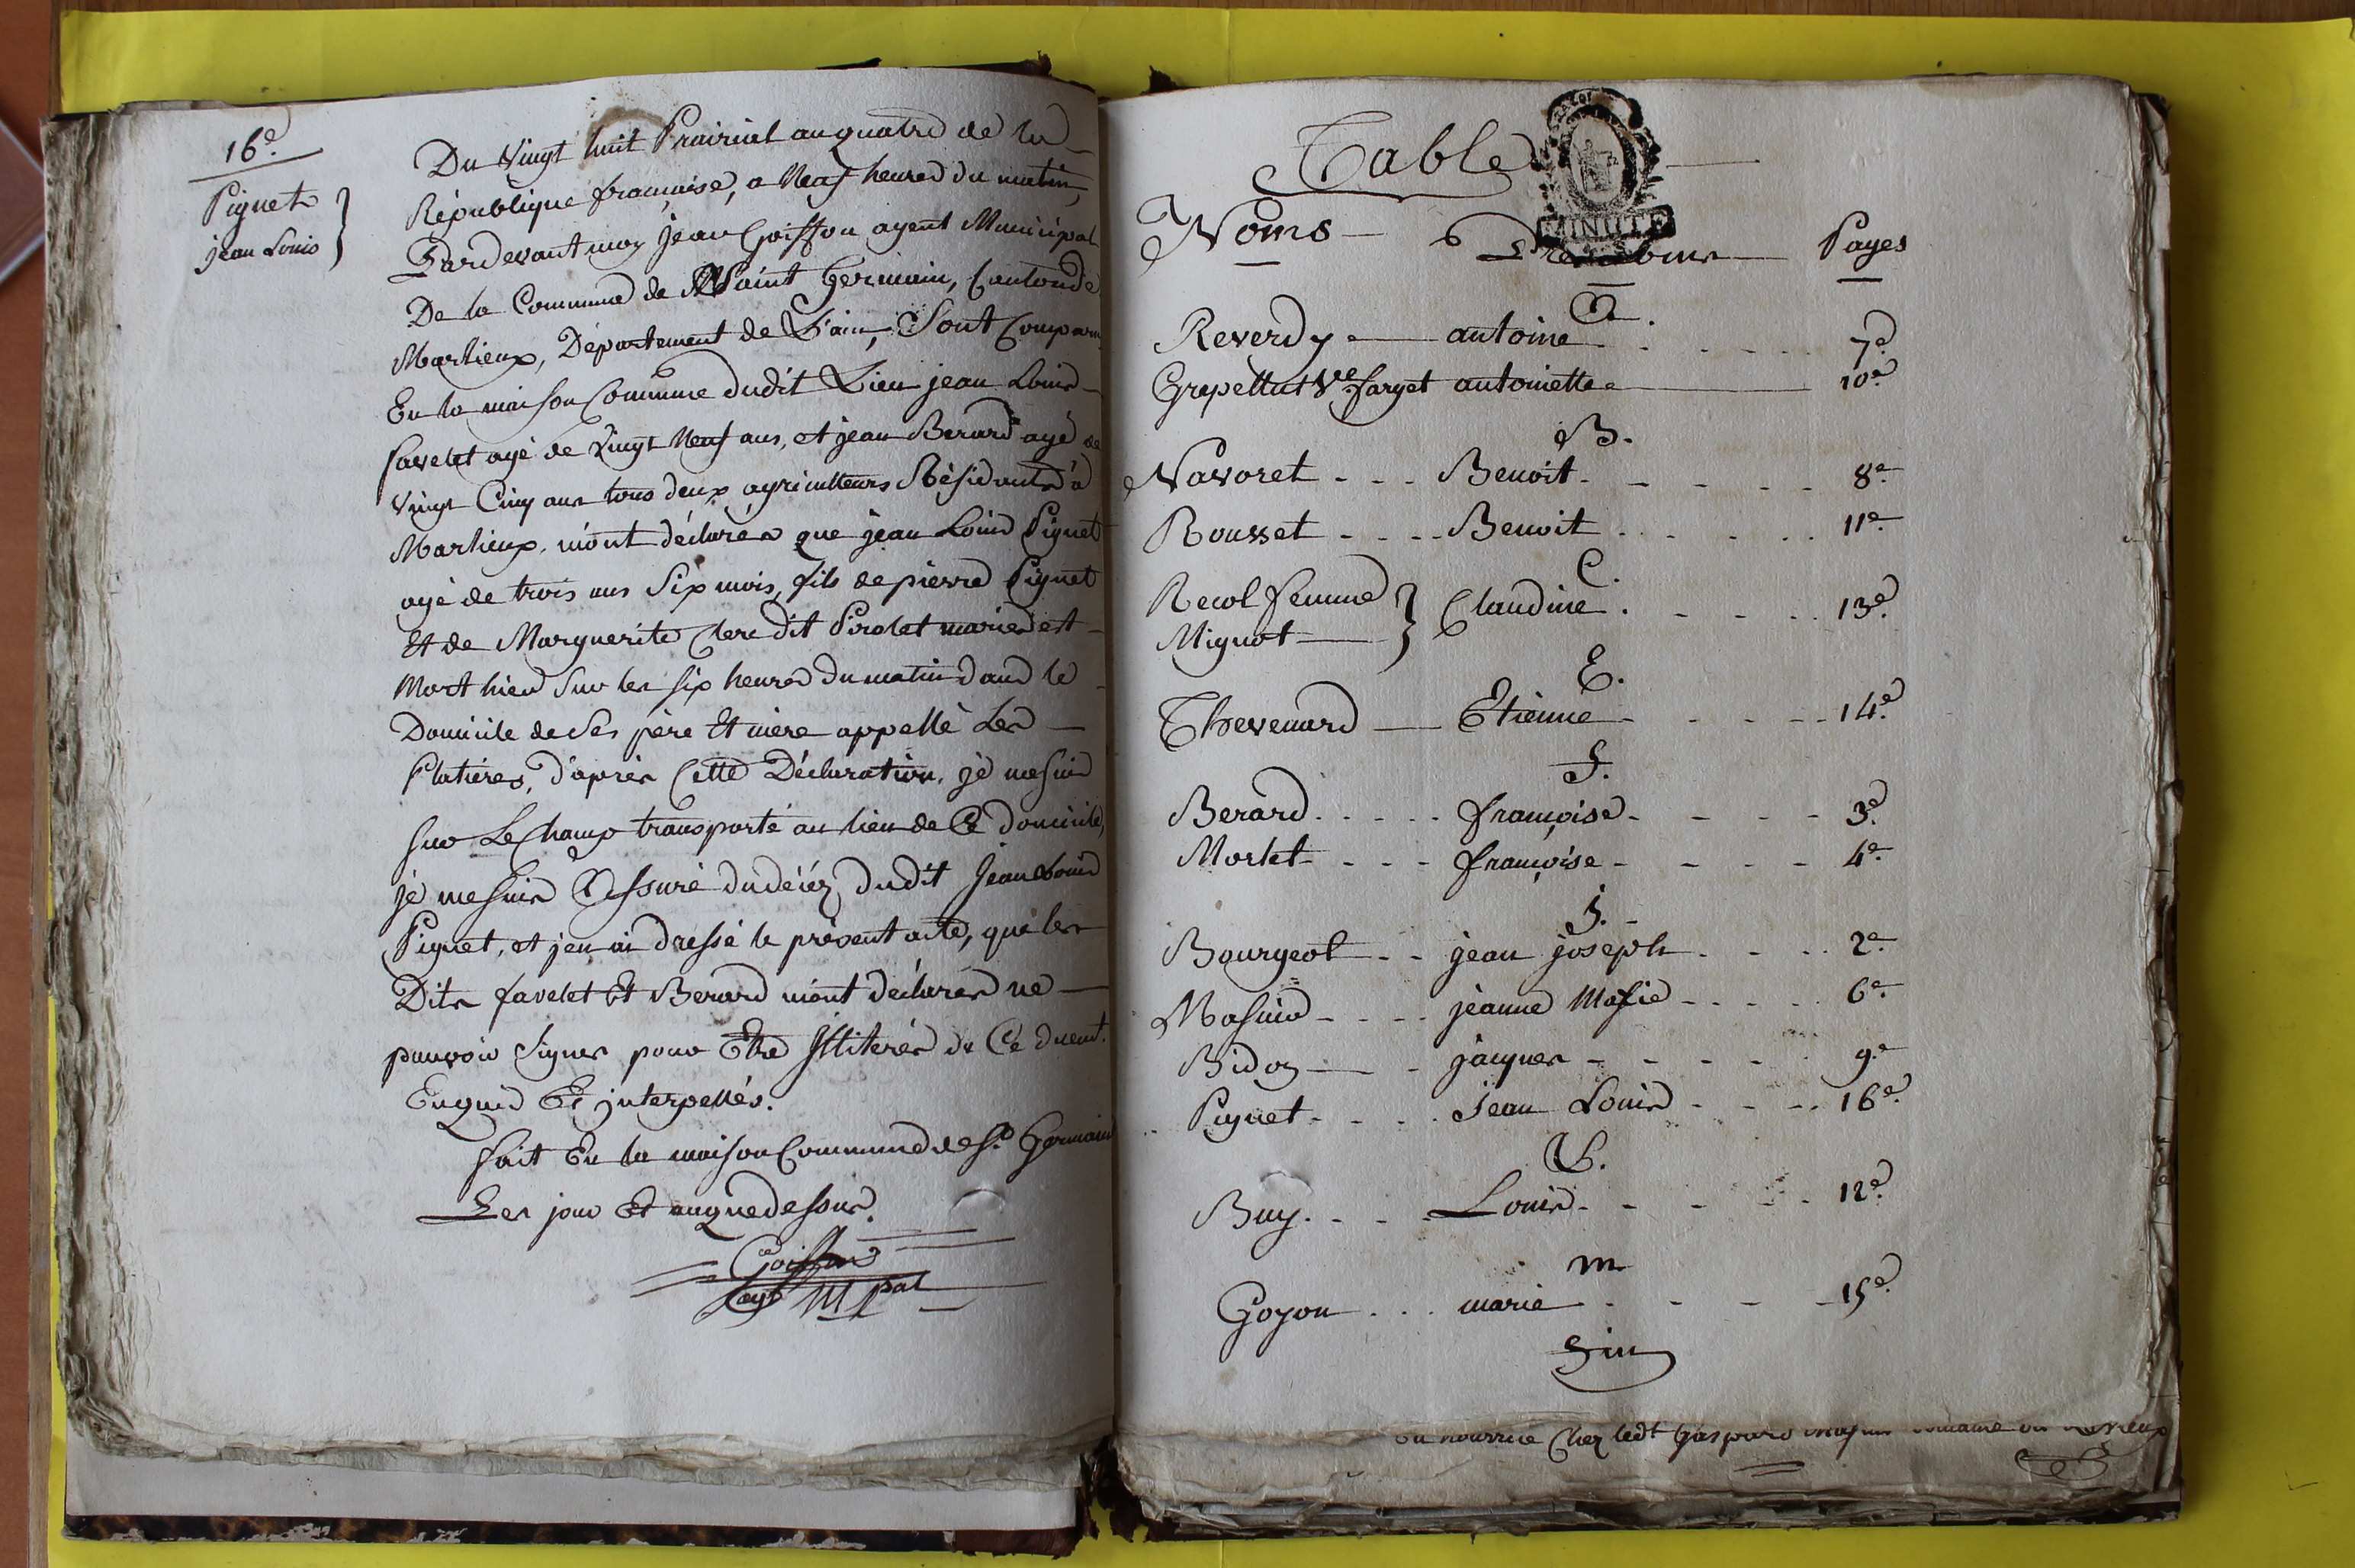 16e.
Pignet
jean Louis
Du Vingt huit Prairial an quatre de la
République française, a Neuf heures du matin,
Pardevant moy jean Goiffon agent Municipal
De la Commune de Saint Germain, Canton de
Marlieux, Département de L'ain, Sont Comparus
En la maison Commune dudit Lieu jean Louis
favelet agé de Vingt Neuf ans, et jean Berard agé de
Vingt Cinq ans tous deux agriculteurs Résidants à
Marlieux. m'ont déclarés que jean Louis Pignet
agé de trois ans Six mois, fils de pierre Pignet
Et de Marguerite Clerc dit Pirolet mariés est
Mort hier Sur les six heures du matin dans le
Domicile de Ses père Et mère appellé Les
Platiéres, d'après Cette Déclaration. je me suis
sur Le Champ transporté au lieu de Ce domicile,
je me suis Assuré du décéz dudit Jean Louis
Pignet, et j'en ai dressé le présent acte, que les
Dits favelet Et Berard m'ont déclarés ne
pouvoir Signer pour Etre Illiterés de Ce duemt.
Enquis Et interpellés.
fait En la maison Commune de St. Germain
Les jour Et an que dessus.
Goiffon
agt Mpal
Table
MINUTE
Noms Prenoms Pages
A.
Reverdy antoine 7e.
Grepellut Ve. farget antoinette 10e.
B.
Navoret Benoit 8e.
Rousset Benoit 11e.
C.
Recol femme
Mignot Claudine 13e.
E.
Thevenard Etienne 14e.
F.
Berard françoise 3e.
Morlet françoise 4e.
J.
Bourgeot jean joseph 2e.
Masuir jeanne Marie 6e.
Bidoz jacques 9e
Pignet Jean Louis 16e.
L.
Buy Louis 12e.
M
Goyon marie 15e.
Fin
En nourrice Chez ledt Gaspard